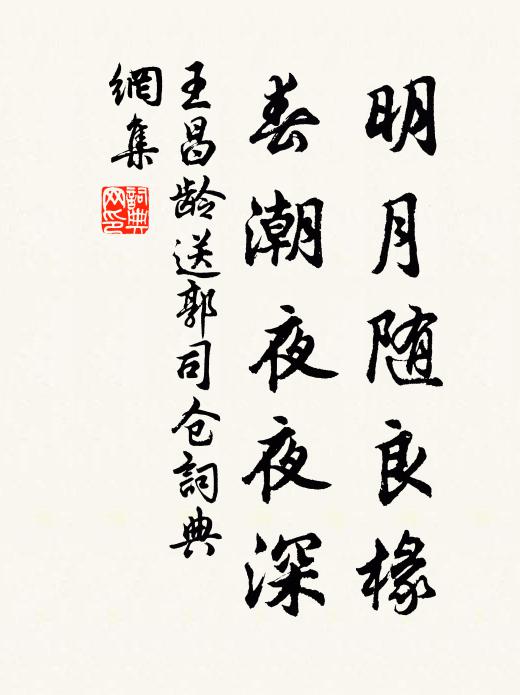 明月随良椽
春潮夜夜深
王昌龄送郭司仓词典
網集
詞典网印